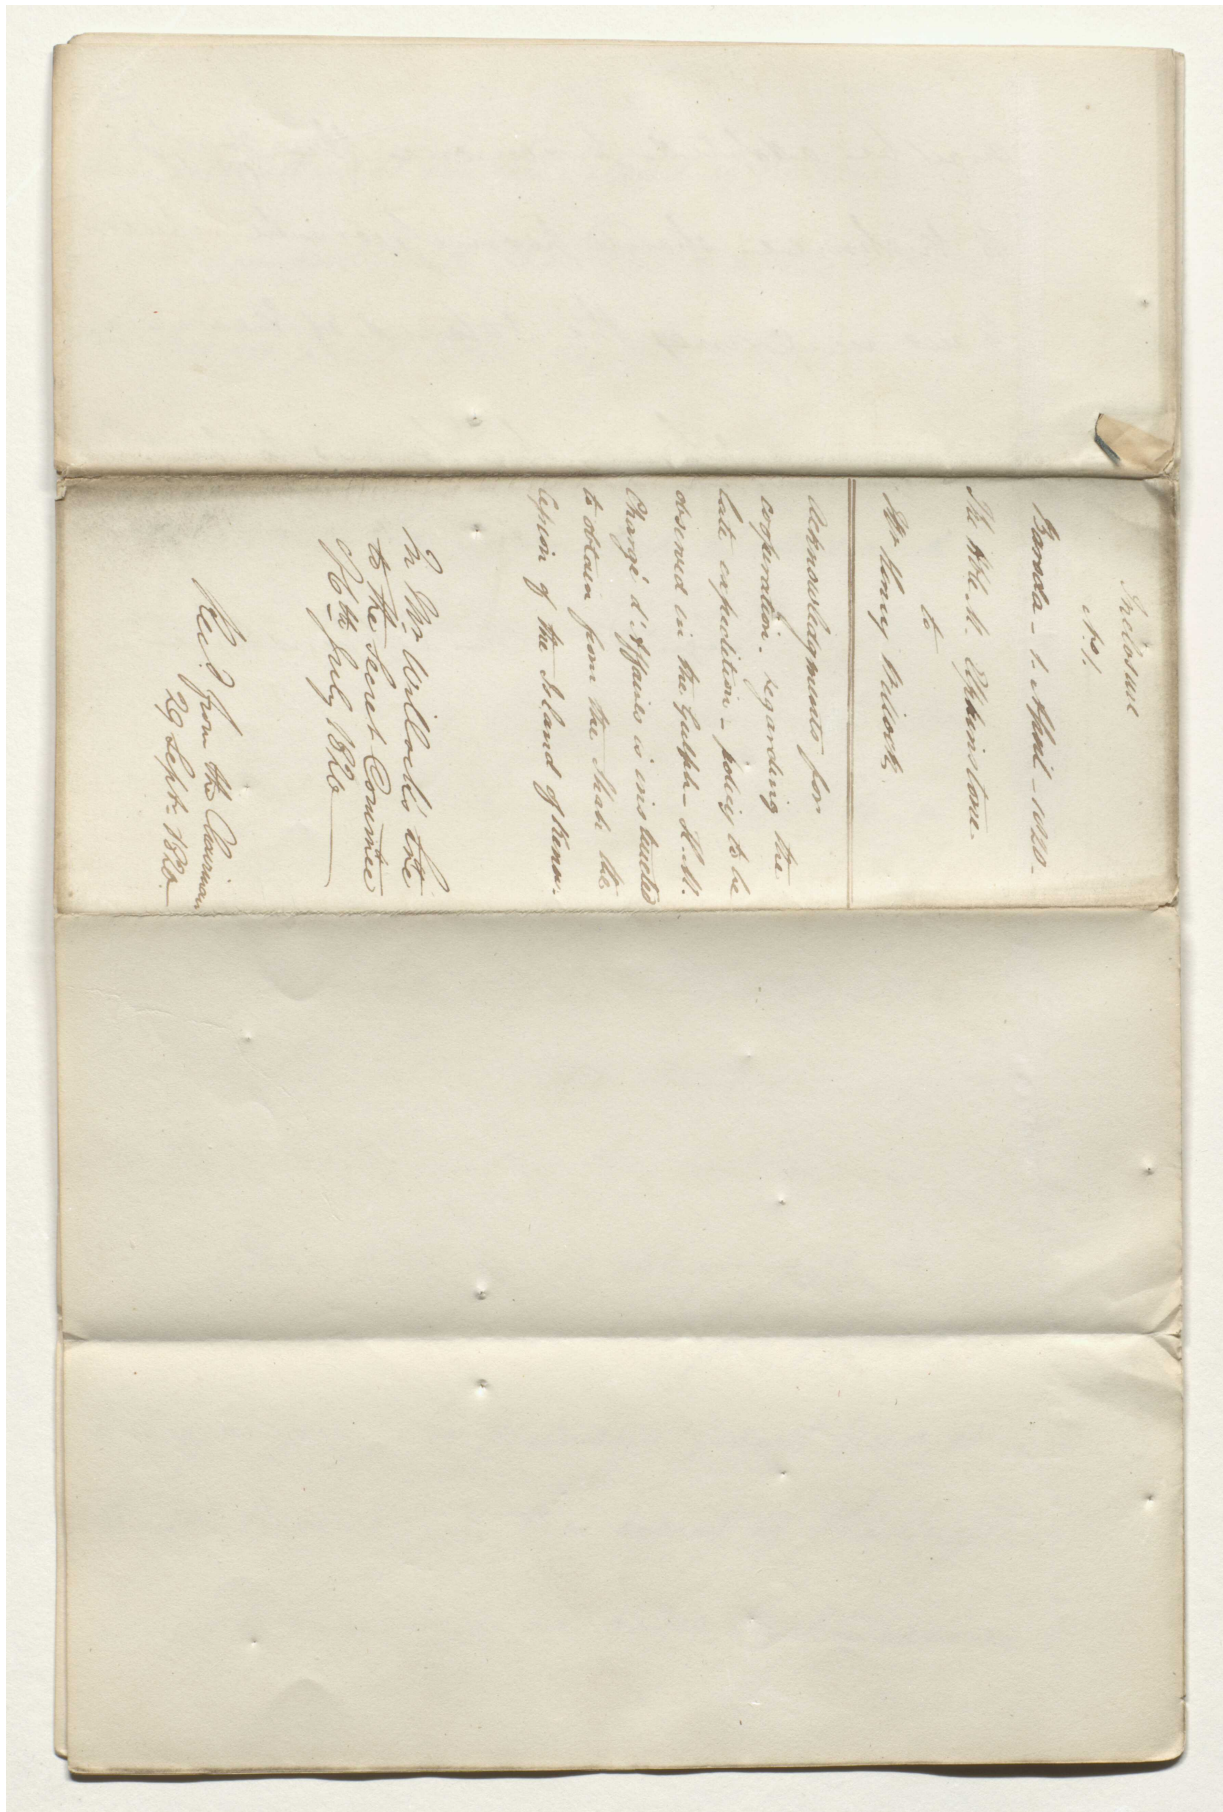 Inclosure
No 1.
Baroda - 1. April - 1820 -
The Hble. M. Elphinstone.
to
Mr Henry Willock.
Acknowledgments for
cooperation - regarding the
late expedition - policy to be
observed in the Gulph - H. M.
Chargé d'Affaires is instructed
to obtain from the Shah the
cession of the Island of Kenn.
In Mr Willock's Lre
to the Secret Commtee
of 6th July 1820
Recd. from the Chairman
29 Sept. 1820.